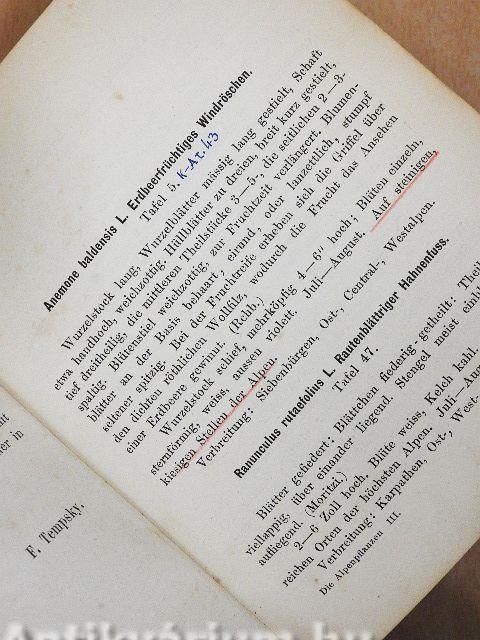 Anemone baldensis L. Erdbeerfrüchtiges Windröschen.
Tafel 5. K-At. 43
Wurzelstock lang, Wurzelblätter müssig lang gestielt, Schaft
etwa handhoch, weichzottig. Hüllblätter zu dreien, breit kurz gestielt,
tief dreitheilig, die mittleren Theilstücke 3—5", die seitlichen 2—3-
spaltig. Blütenstiel weichzottig, zur Fruchtzeit verlängert. Blumen-
blätter an der Basis behaart, eirund, oder lanzettlich, stumpf
seltener spitzig. Bei der Fruchtreife erheben sich die Griffel über
den dichten röthlichen Wollfilz, wodurch die Frucht das Ansehen
einer Erdbeere gewinnt. (Rchb.)
Wurzelstock schief, mehrköpfig 4—6" hoch; Blüten einzeln,
sternförmig, weiss, aussen violett. Juli—August. Auf steinigen,
kiesigen Stellen der Alpen.
Verbreitung: Siebenbürgen, Ost-, Central-, Westalpen.
Ranunculus rutaefolius L. Rautenblättriger Hahnenfuss.
Tafel 47.
Blätter gefiedert: Blättchen fiederig-getheilt: Theil
viellappig, über einander liegend. Stengel meist einbl
aufliegend. (Moritzi.)
2—6 Zoll hoch. Blüte weiss, Kelch kahl.
reichen Orten der höchsten Alpen. Juli—Aug
Verbreitung: Karpathen, Ost-, West-
Die Alpenpflanzen III.
F. Tempsky.
Antikvárium.hu